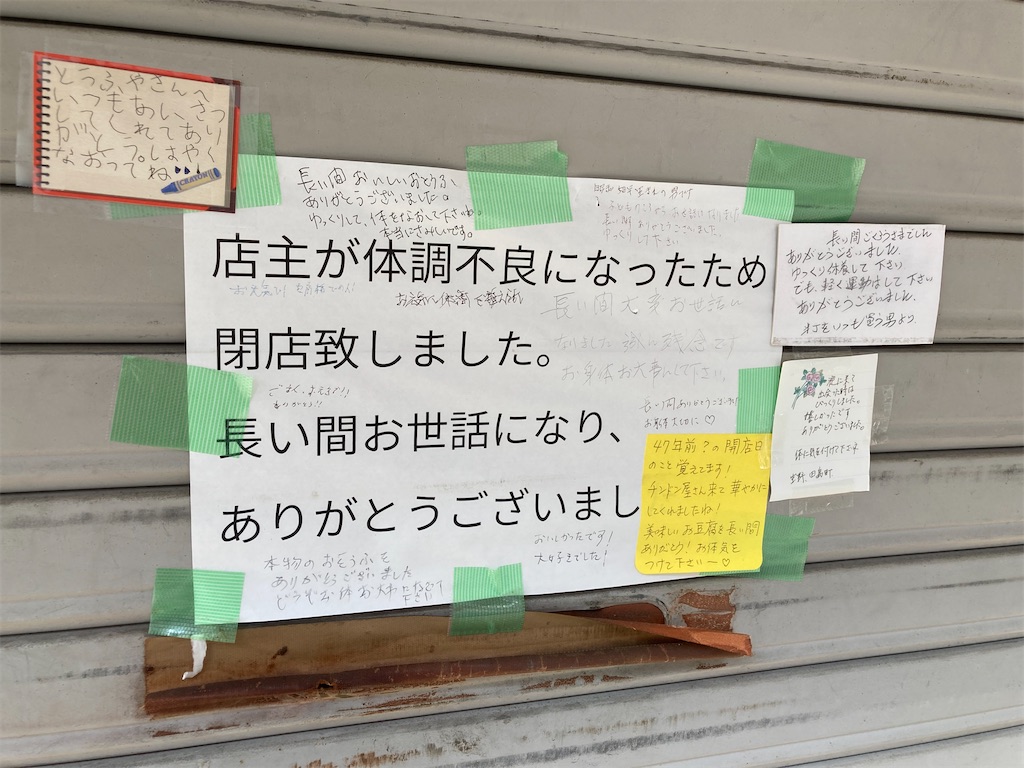 とうふやさんへ
いつもあいさつ
してくれてあり
がとう。はやく
なおってね
CRAYON
長い間おいしいおとうふ、
ありがとうございました。
ゆっくりして、体をなおして下さいね。
本当にさみしいです。
お世話になりました
長い間ありがとうございました。
ゆっくりして下さい
店主が体調不良になったため
長い間大変お世話に
なりました 誠に残念です
お身体お大事にして下さい。
閉店致しました。
長い間ありがとうございます
お身体大切に♡
長い間お世話になり、
ありがとうございまし
おいしかったです!
大好きでした!
本物のおとうふを
ありがとうございました
どうぞお体お大事になさって
下さい
長い間ごくろうさまでした
ありがとうございました。
ゆっくり休養して下さい
でも、軽く運動はして下さい
ありがとうございました。
いつも買う男より
びっくりしました。
ありがとうございました。
体に気を付けて下さい
47年前?の開店日
のこと覚えてます!
チンドン屋さん来て華やかに
してくれましたね!
美味しいお豆腐を長い間
ありがとう!お体気を
つけて下さい〜♡